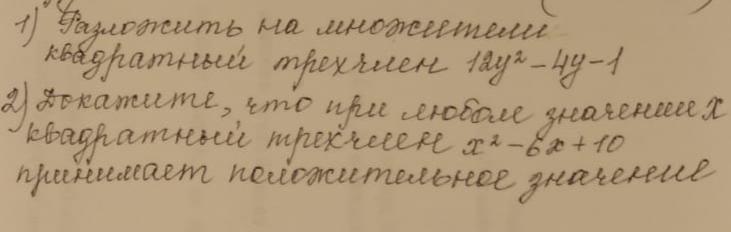 1) Разложить на множители
квадратный трехчлен 12y² - 4y - 1
2) Докажите, что при любом значении x
квадратный трехчлен x² - 6x + 10
принимает положительное значение